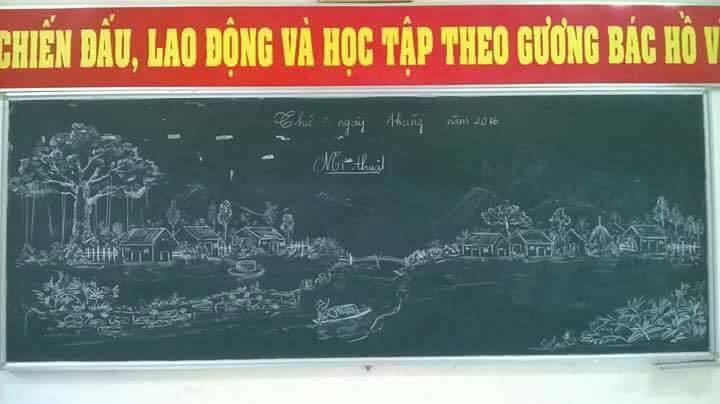 CHIẾN ĐẤU, LAO ĐỘNG VÀ HỌC TẬP THEO GƯƠNG BÁC HỒ V
Thứ ngày tháng năm 2016
Mĩ thuật